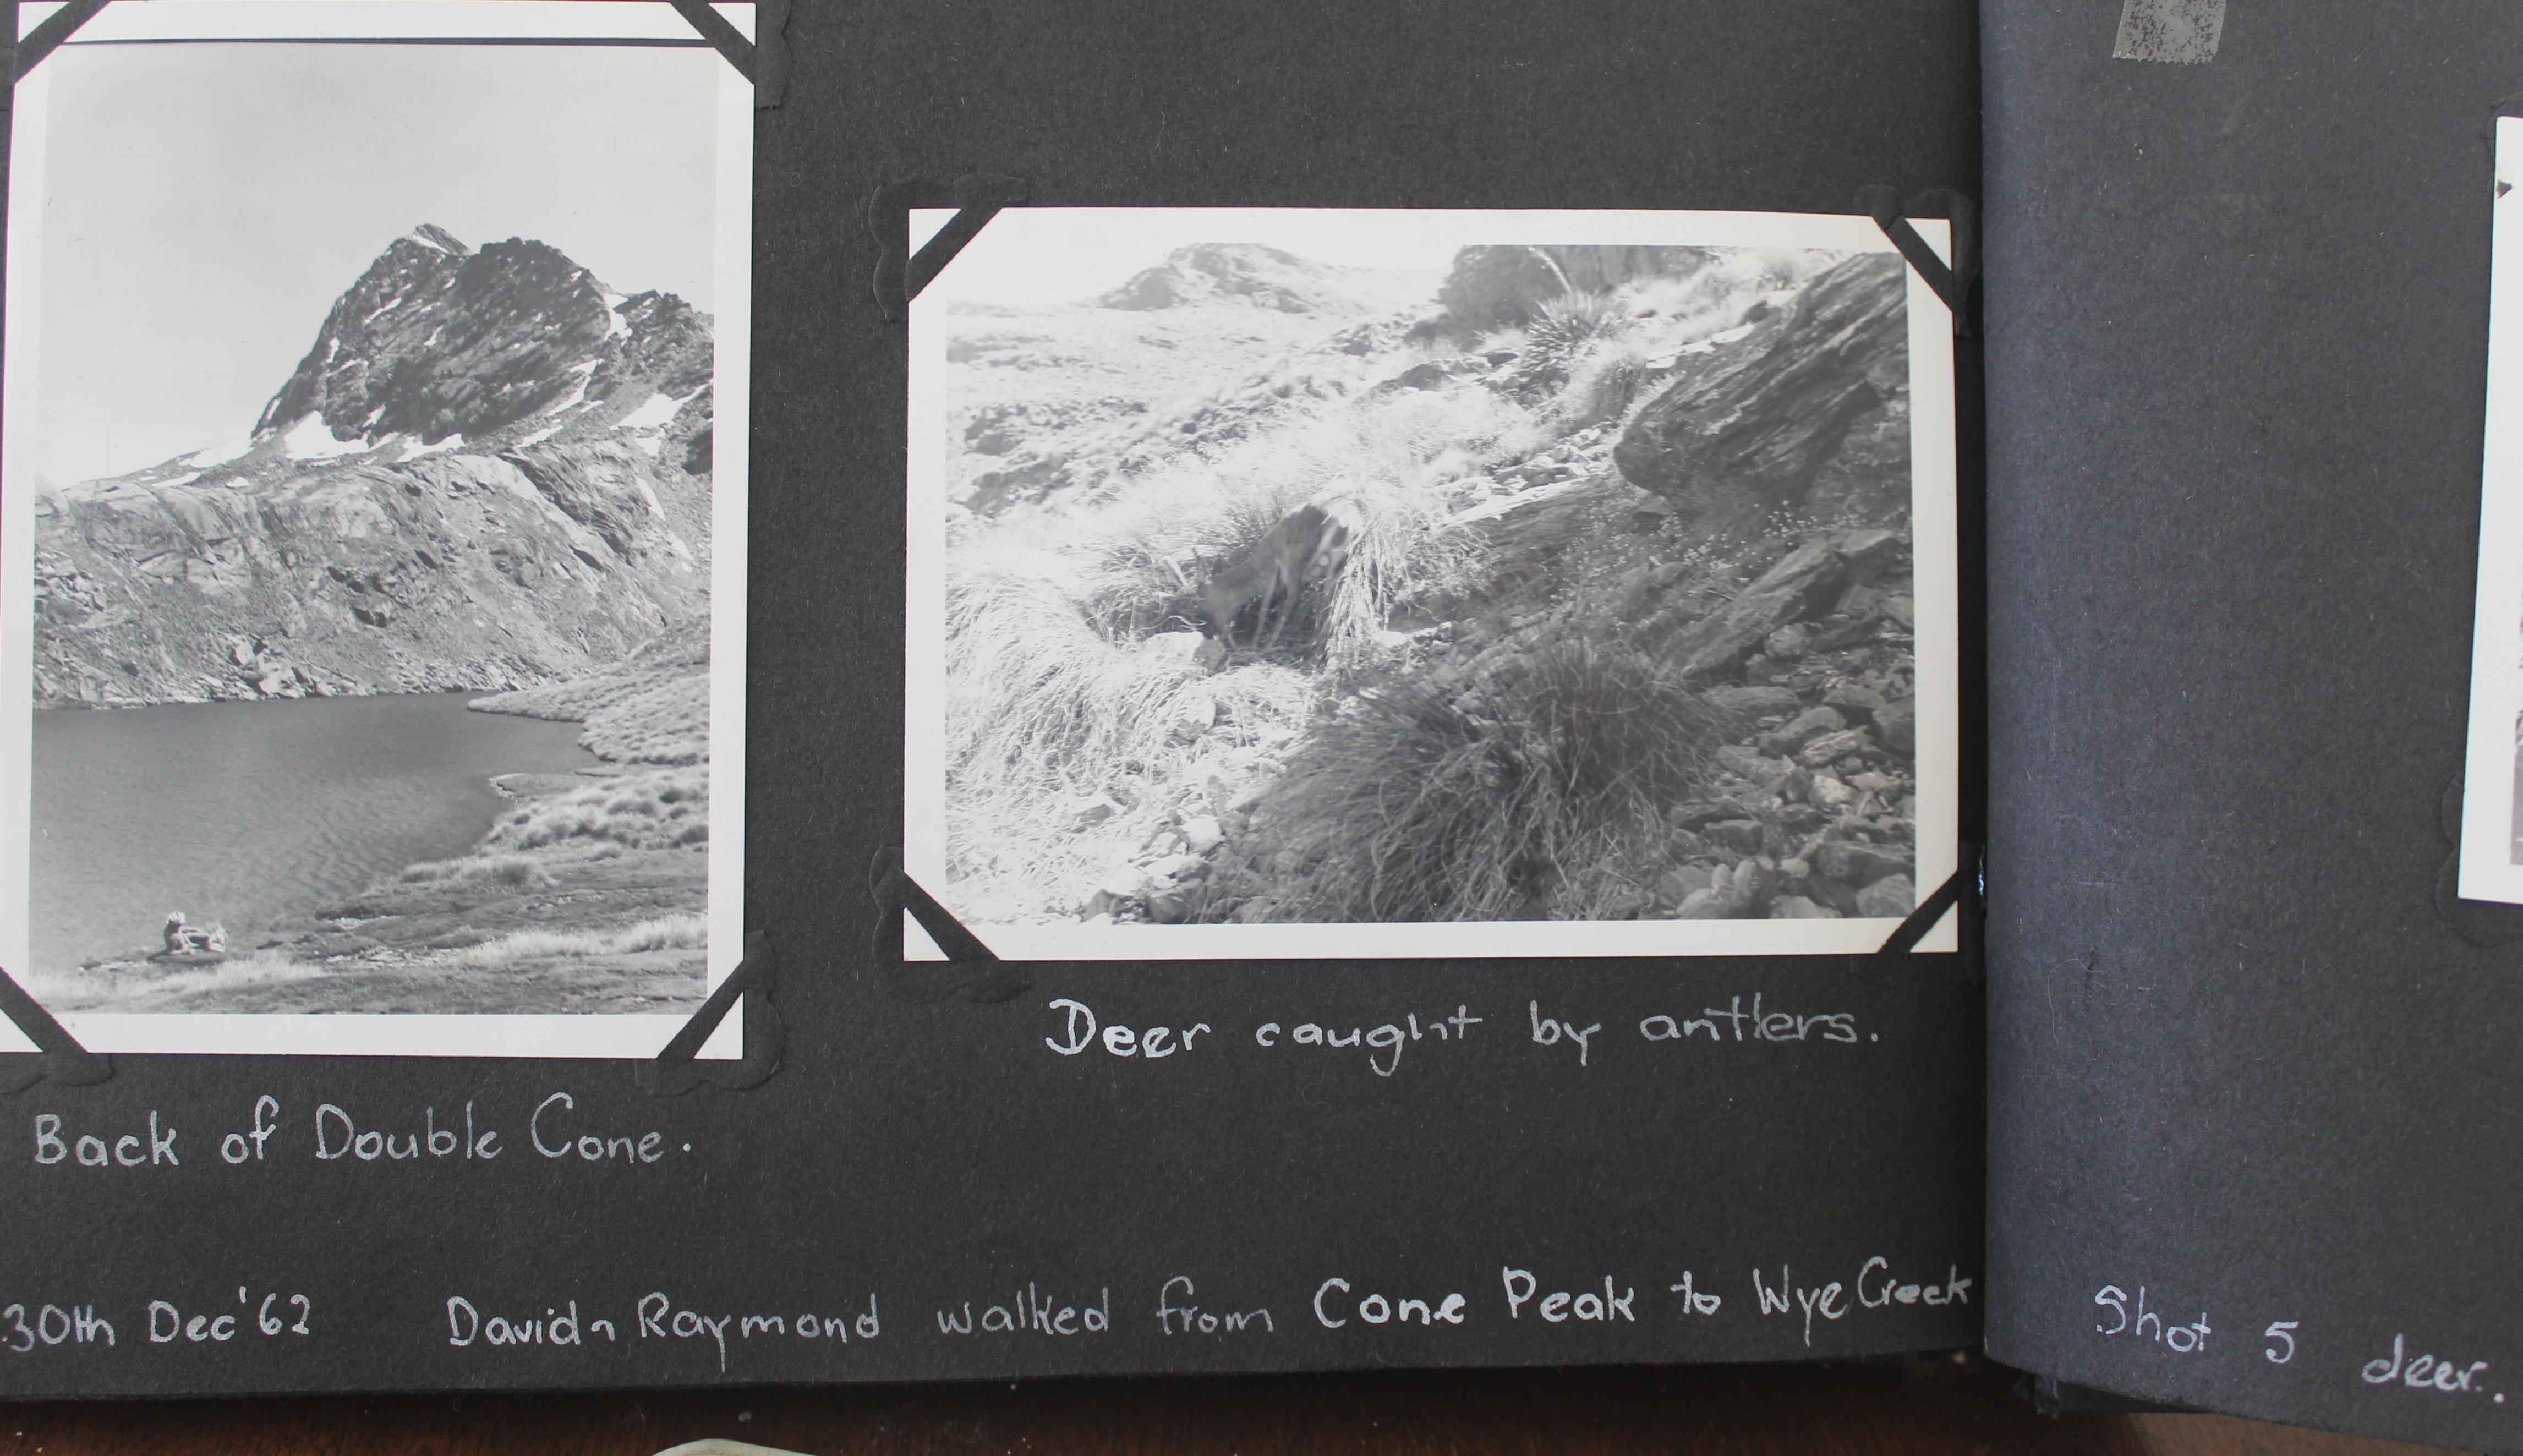 Deer caught by antlers.
Back of Double Cone.
30th Dec '62 David n Raymond walked from Cone Peak to Wye Creek
Shot 5 deer.